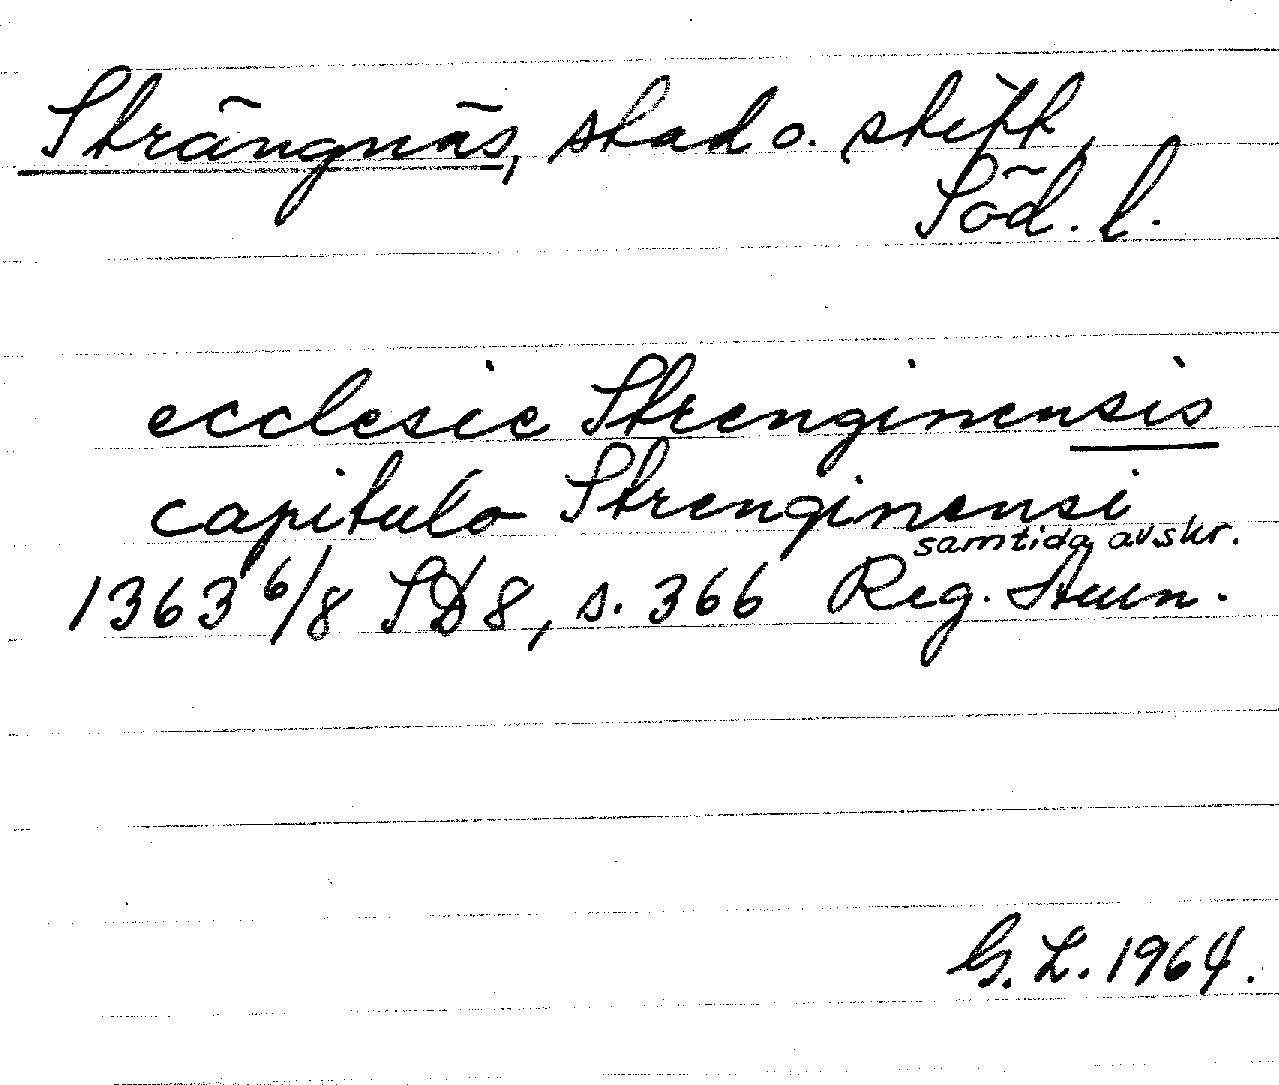 Strängnäs, stad o. stift,
Söd. l.
ecclesie Strenginensis
capitulo Strenginensi
samtida avskr.
1363 6/8 SD 8, s. 366 Reg.
G. L. 1964.